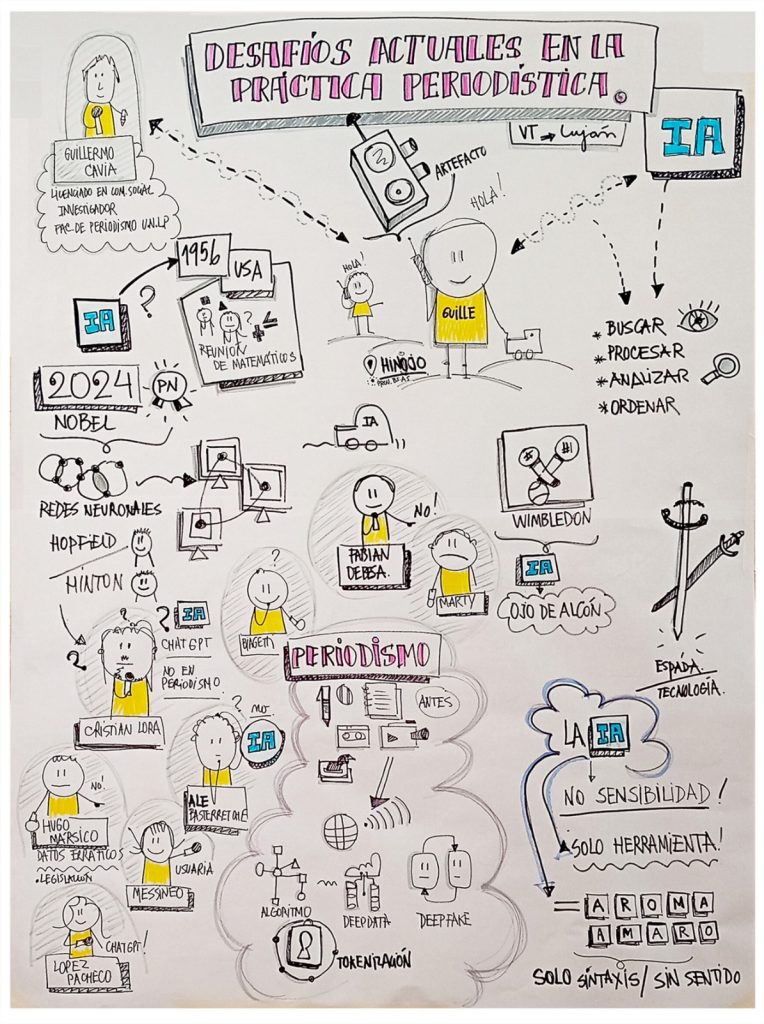 DESAFÍOS ACTUALES EN LA
PRÁCTICA PERIODÍSTICA.
VT → Luján
IA
GUILLERMO
CAVIA
LICENCIADO EN COM. SOCIAL
INVESTIGADOR
FAC. DE PERIODISMO UNLP
ARTEFACTO
HOLA!
HOLA!
GUILLE
HINOJO
PROV. BS. AS
* BUSCAR
* PROCESAR
* ANALIZAR
* ORDENAR
1956
USA
IA ?
?
REUNIÓN
DE MATEMÁTICOS
2024
PN
NOBEL
REDES NEURONALES
HOPFIELD
HINTON
IA
NO!
FABIAN
DEBESA.
MARTY
WIMBLEDON
IA
OJO DE ALCÓN
ESPADA.
TECNOLOGÍA.
?
BIAGETTI
? ? ?
IA
CHATGPT
NO EN
PERIODISMO
CRISTIAN LORA
PERIODISMO
ANTES
ALGORITMO
DEEPDATA
DEEPFAKE
TOKENIZACIÓN
? NO
IA
ALE
BASTERRECHE
NO!
HUGO
MARSICO
DATOS ERRÁTICOS
. LEGISLACIÓN
USUARIA
MESSINEO
CHATGPT!
LOPEZ
PACHECO
LA IA
NO SENSIBILIDAD!
¡SOLO HERRAMIENTA!
= AROMA
AMARO
SOLO SINTAXIS/ SIN SENTIDO